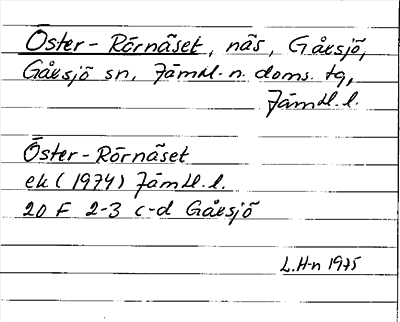 Öster-Rörnäset, näs, Gåxsjö,
Gåxsjö sn, Jämtl. n. doms. tg,
Jämtl. l.
Öster-Rörnäset
ek (1974) Jämtl. l.
20 F 2-3 c-d Gåxsjö
L.H-n 1975